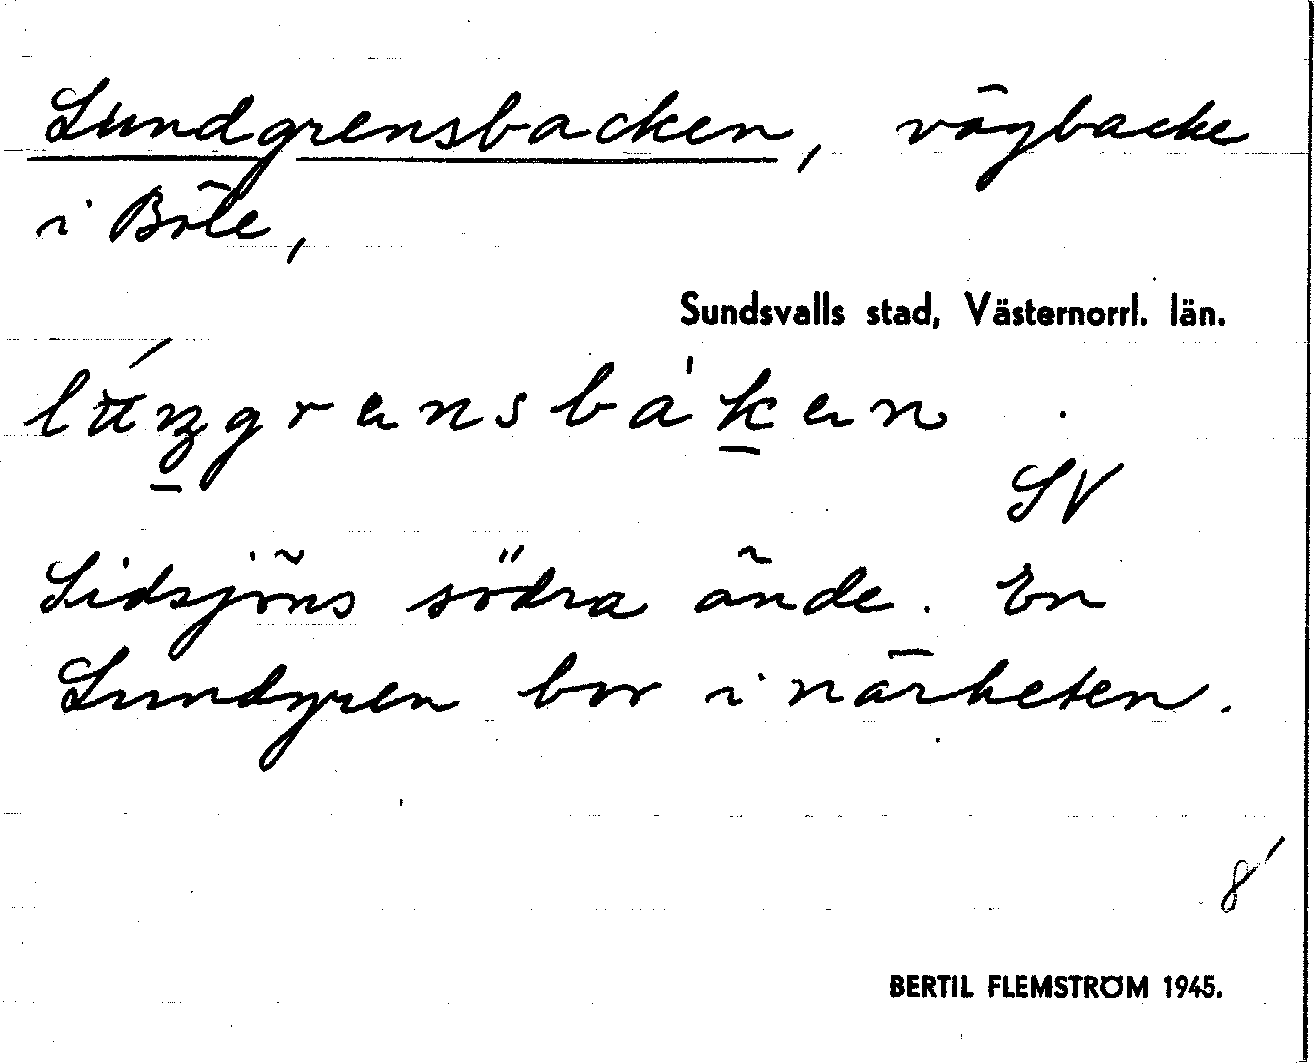 Lundgrensbacken, vägbacke
i Böle,
Sundsvalls stad, Västernorrl. län.
SV
Sidsjöns södra ände. En
Lundgren bor i närheten.
8'
BERTIL FLEMSTRÖM 1945.